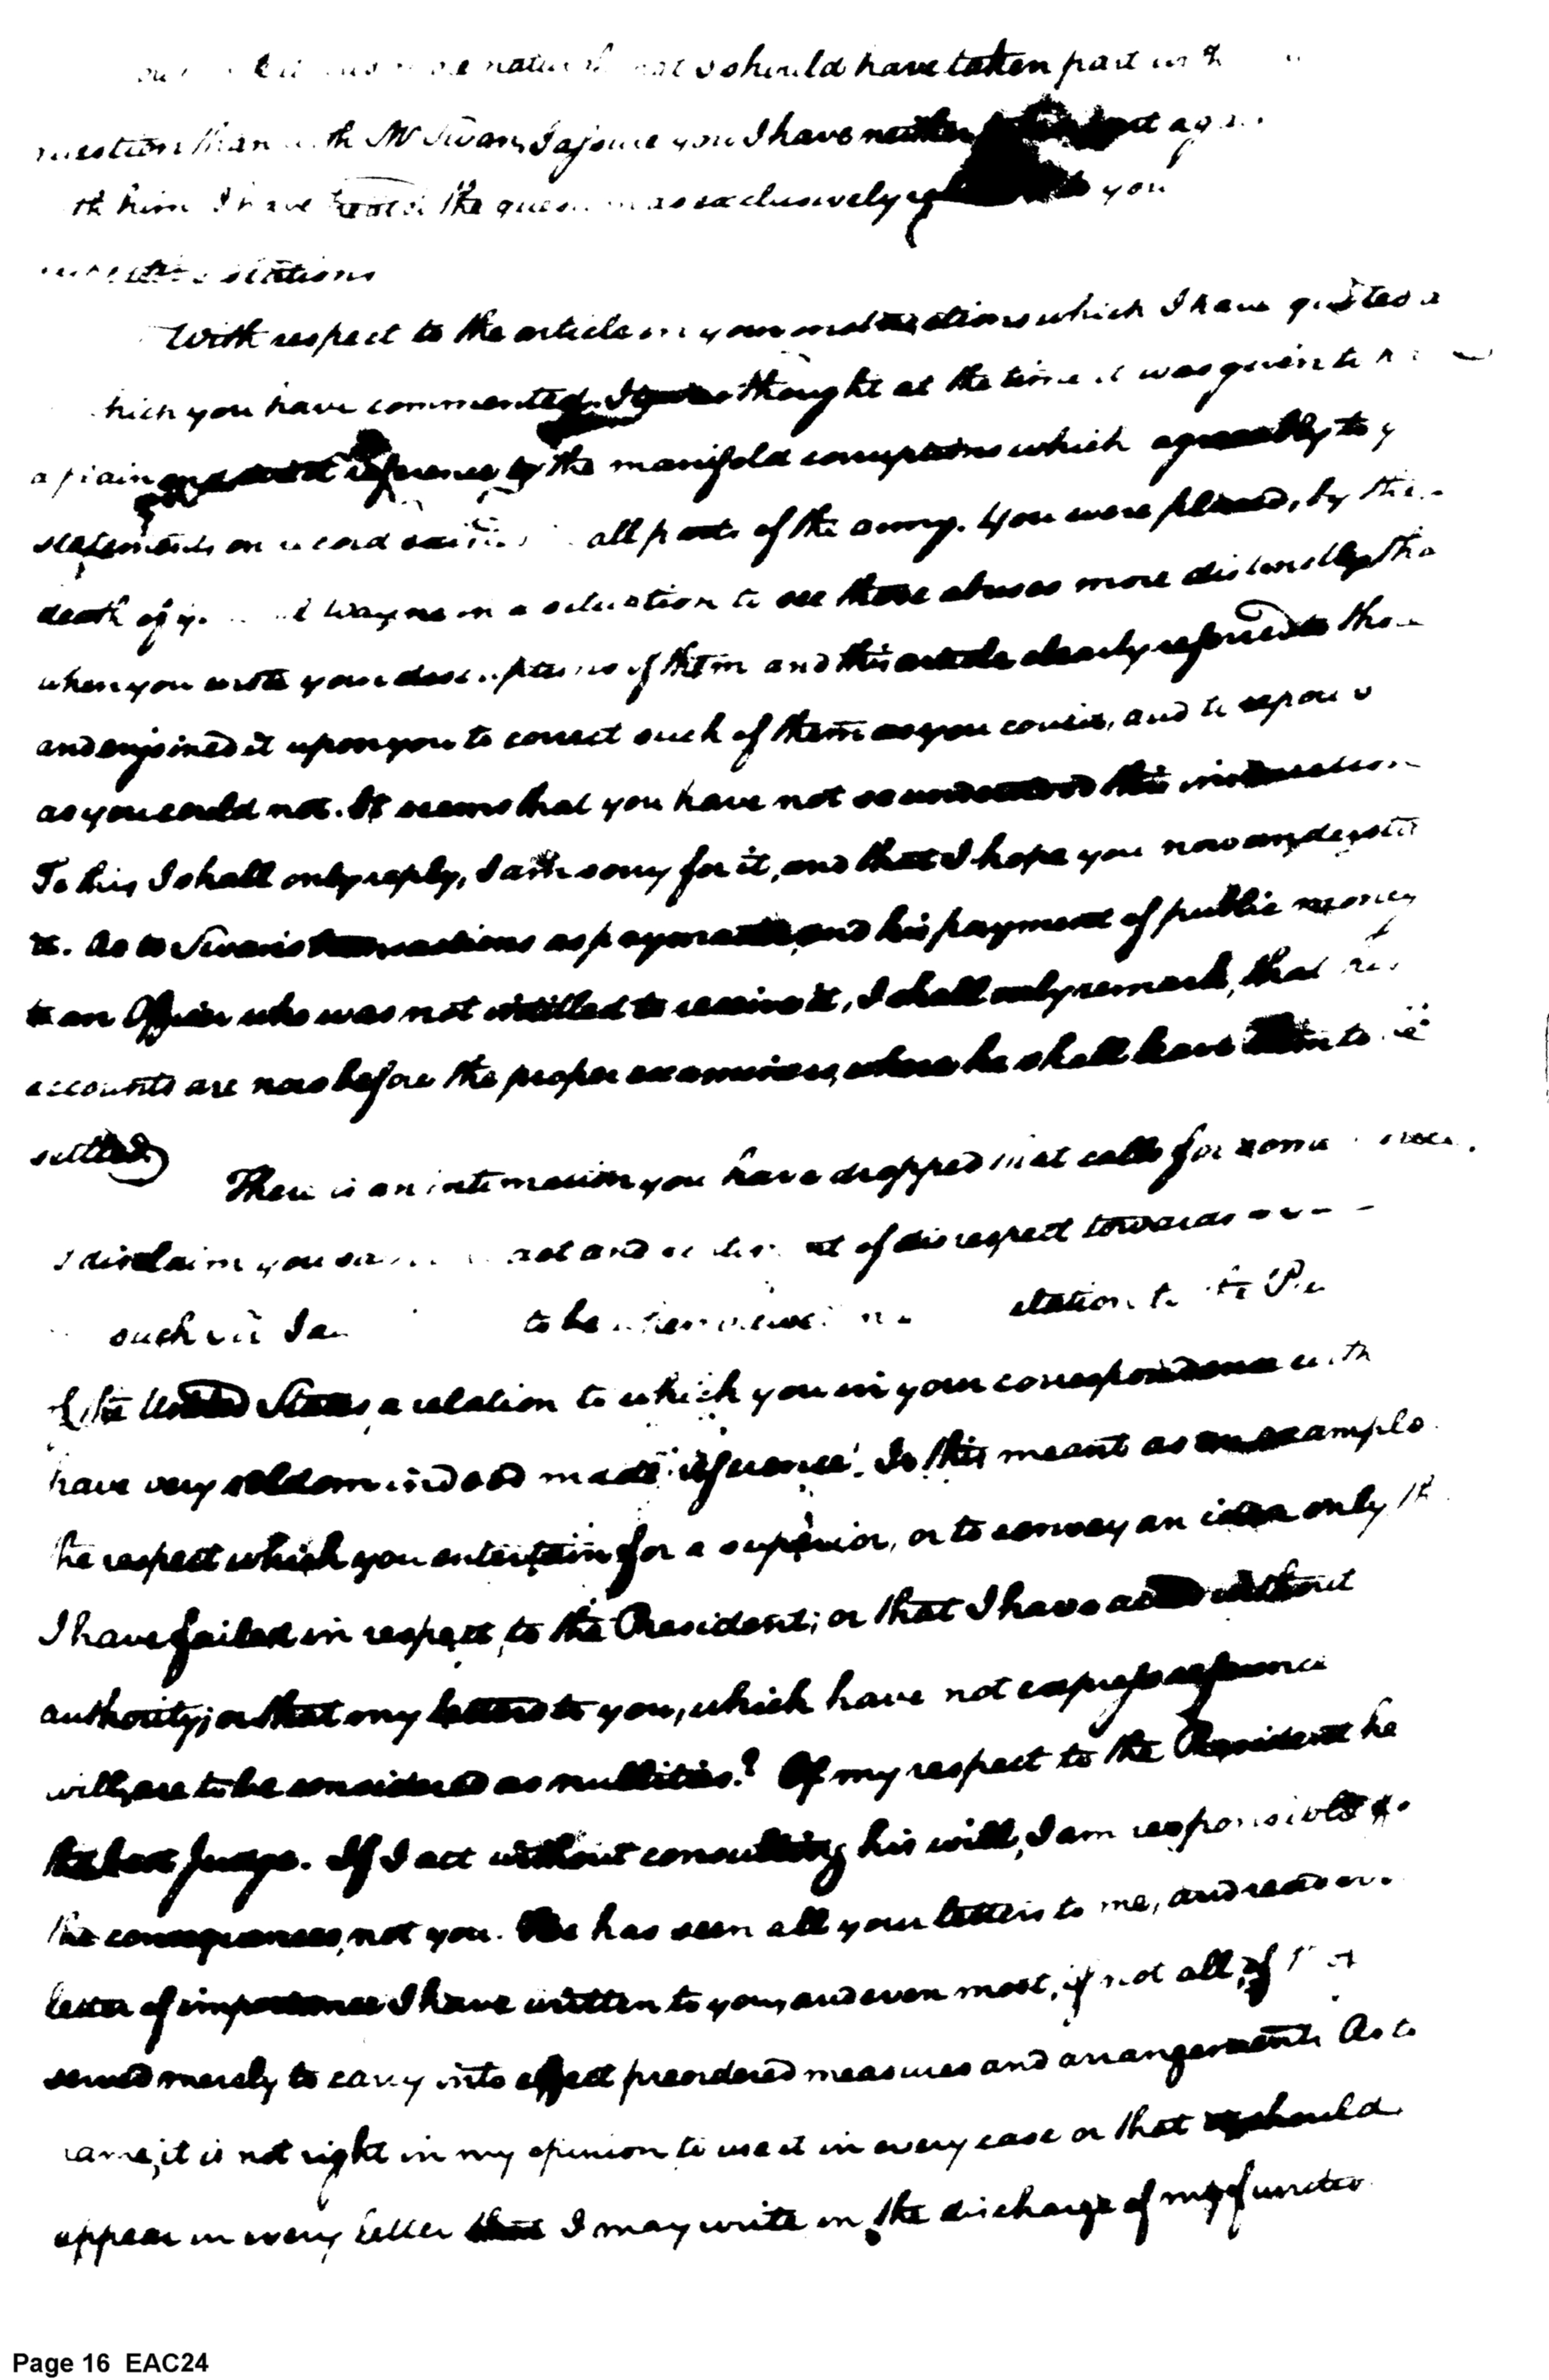 natural I should have taken part in
question than with Mr Swan, I assure you I have neither
him I have the as exclusively you
stations
With respect to the article in your instructions which I have quoted
which you have commented. I thought at the time it was given to
a plain reference to the manifold corruptions which agreeably to
statements on record all parts of the army. You were placed, by the
death of Wayne in a situation to see these abuses more distinctly
when you wrote your descriptions of them and this article clearly referred to
and enjoined it upon you to correct such of them as you could, and to
as you could not. It seems that you have not so understood this instruction
To this I shall only reply, I am sorry for it, and that I hope you now understand
it. As to Swan's transactions as paymaster, and his payment of public money
to an Officer who was not intitled to receive it, I shall only remark, that his
accounts are now before the proper examiners, where he shall leave them to be
settled
There is an intimation you have dropped that calls for some
I disclaim you say act and of disrespect towards
such to be relation to
of the United States, a relation to which you in your correspondence with
have very seldom indeed made reference. Is this meant as an example
the respect which you entertain for a superior, or to convey an idea only
I have failed in respect, to the President; or that I have acted without
authority; or that my letters to you, which have not express reference
will, are to be considered as nullities? Of my respect to the President he
the best Judge. If I act without consulting his will, I am responsible
the consequences, not you. He has seen all your letters to me, and
letter of importance I have written to you, and even most, if not all, of
served merely to carry into effect preordered measures and arrangements As to
name, it is not right in my opinion to use it in every case or that it should
appear in every letter that I may write in the discharge of my
Page 16 EAC24